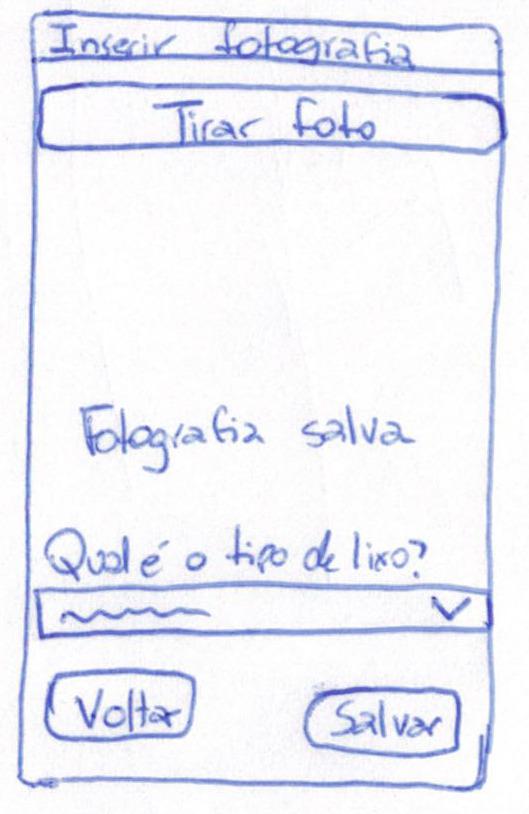 Inserir fotografia
Tirar foto
Fotografia salva
Qual é o tipo de lixo?
Voltar
Salvar